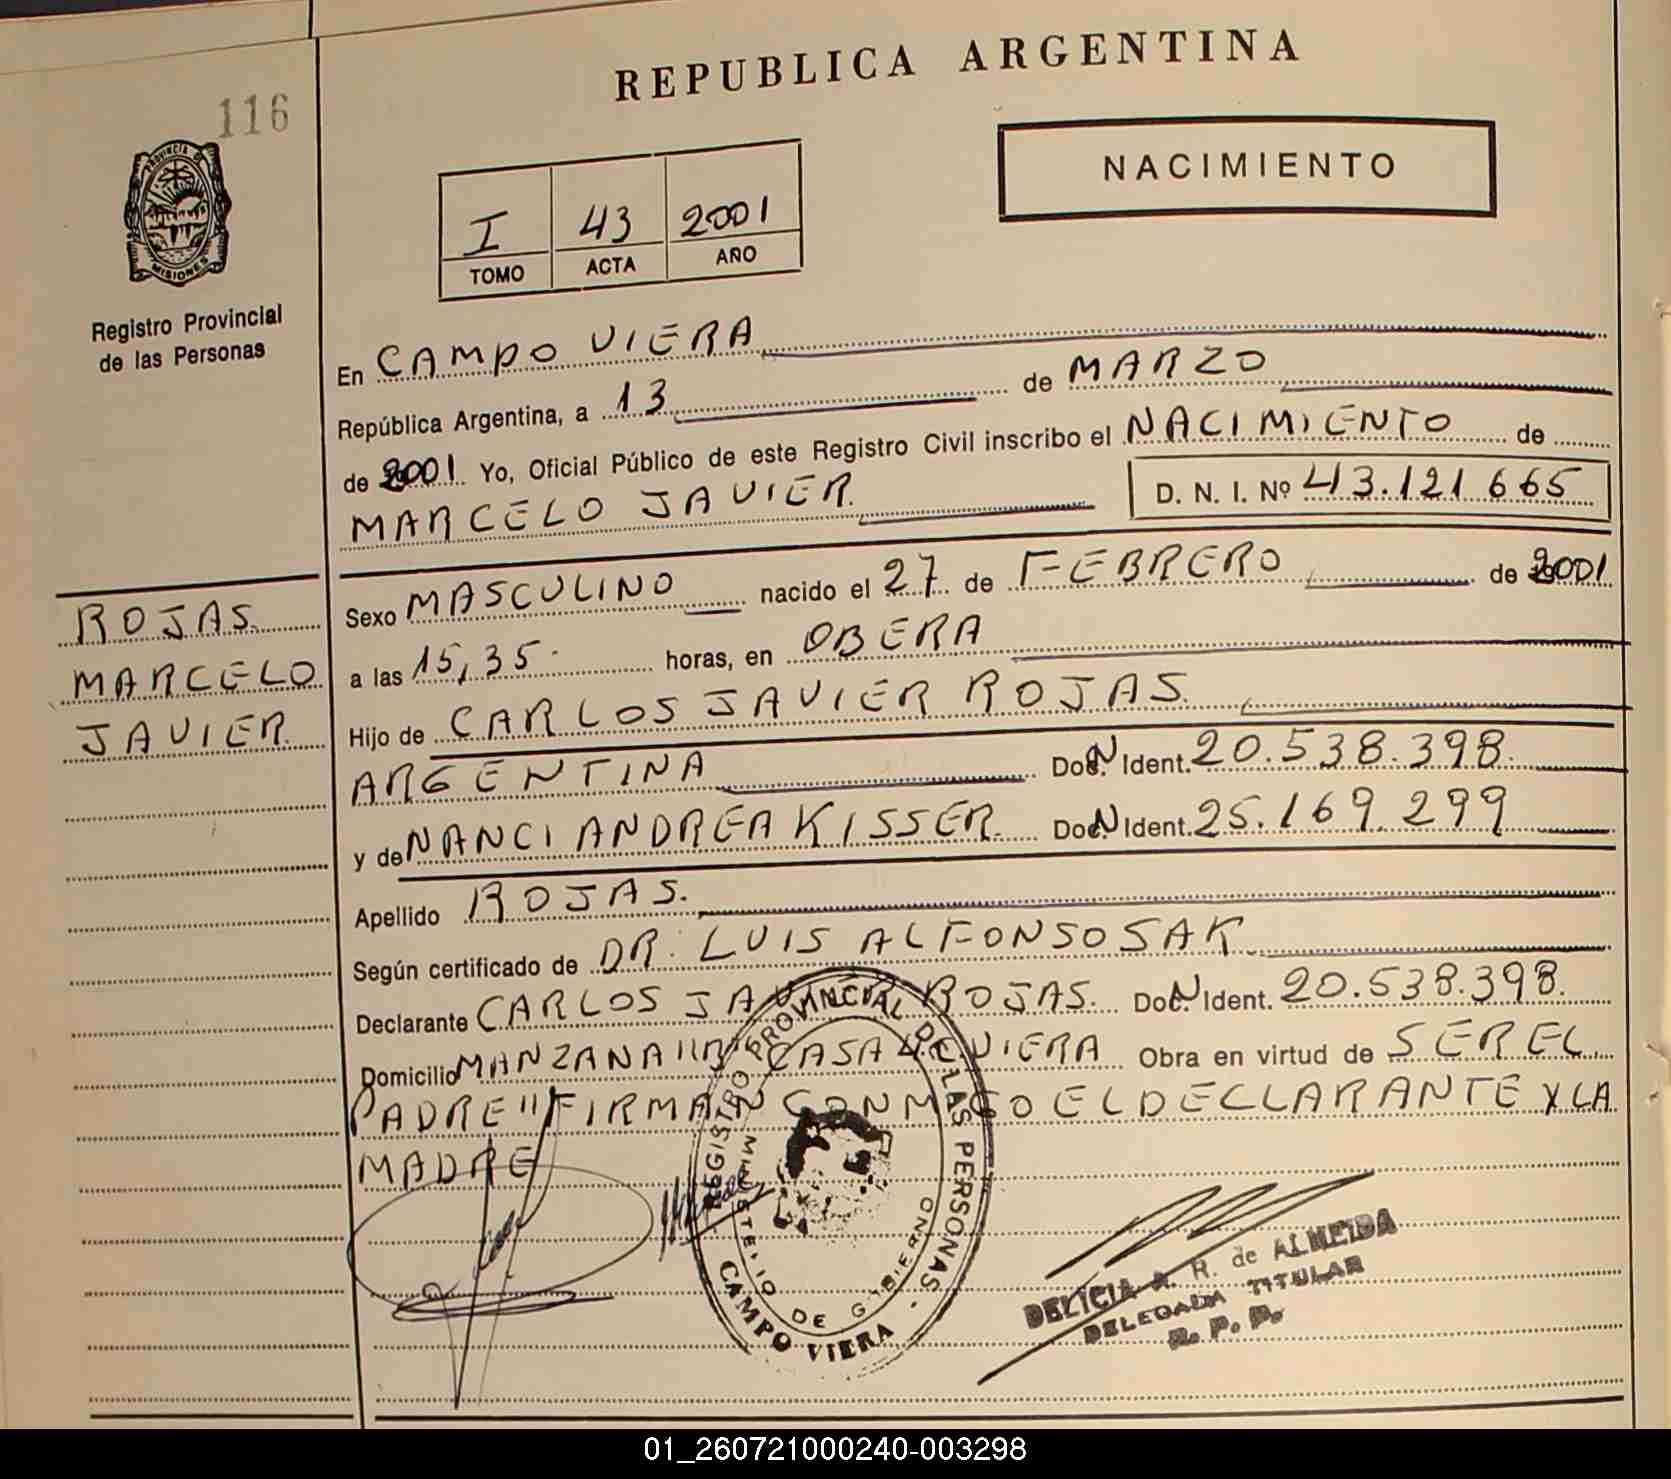 REPUBLICA ARGENTINA
116
NACIMIENTO
PROVINCIA DE
MISIONES
I 43 2001
TOMO ACTA AÑO
Registro Provincial
de las Personas
En CAMPO VIERA
República Argentina, a 13 de MARZO
de 2001 Yo, Oficial Público de este Registro Civil inscribo el NACIMIENTO de
MARCELO JAVIER D. N. I. Nº 43.121665
Sexo MASCULINO nacido el 27 de FEBRERO de 2001
a las 15,35. horas, en OBERA
Hijo de CARLOS JAVIER ROJAS.
ARGENTINA Doc. N Ident. 20.538.398.
y de NANCI ANDREA KISSER Doc. N Ident. 25.169.299
Apellido ROJAS.
Según certificado de DR. LUIS ALFONSO SAK
Declarante CARLOS JAVIER ROJAS. Doc. N Ident. 20.538.398.
Domicilio MANZANA "B" CASA 4 C. VIERA Obra en virtud de SER EL
PADRE "FIRMAN CONMIGO EL DECLARANTE Y LA
MADRE
ROJAS.
MARCELO
JAVIER.
REGISTRO PROVINCIAL DE LAS PERSONAS
MINISTERIO DE GOBIERNO
CAMPO VIERA
DELICIA A. R. de ALMEIDA
DELEGADA TITULAR
R. P. P.
01_260721000240-003298